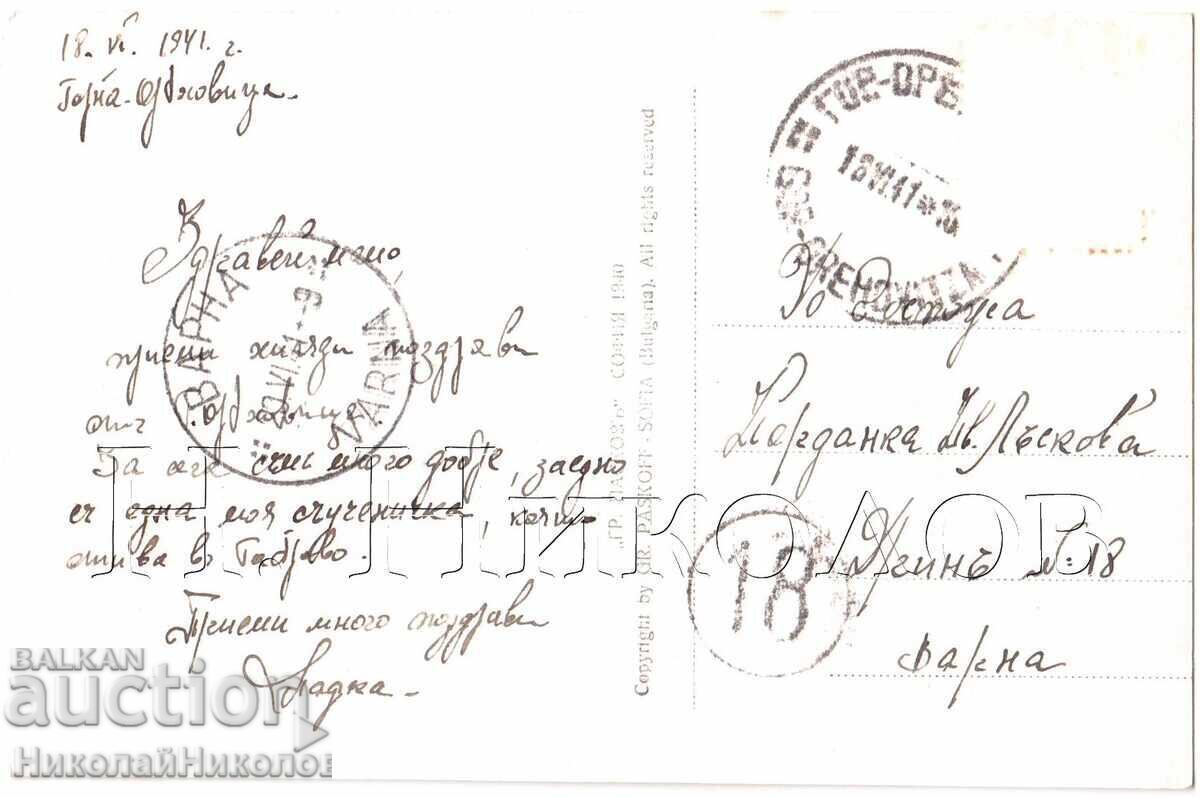 18. VI. 1941. г.
Горна-Оряховица.
Здравей мено,
приеми хиляди поздрави
от г. Оряховица.
За сега съм много добре, заедно
с една моя съученичка, която
отива в Габрово.
Приеми много поздрави
Надка.
„ГР. ПАСКОВЪ" СОФИЯ 1940
Copyright by GR. PASKOFF - SOFIA (Bulgaria). All rights reserved
ГОР.-ОРЕ
18 VI 41 * 16
ВАРНА
VARNA
18
До Госпожа
Йорданка Ив. Лъскова
№ 18
Варна
Н НИКОЛОВ
BALKAN
auction
НиколайНиколов